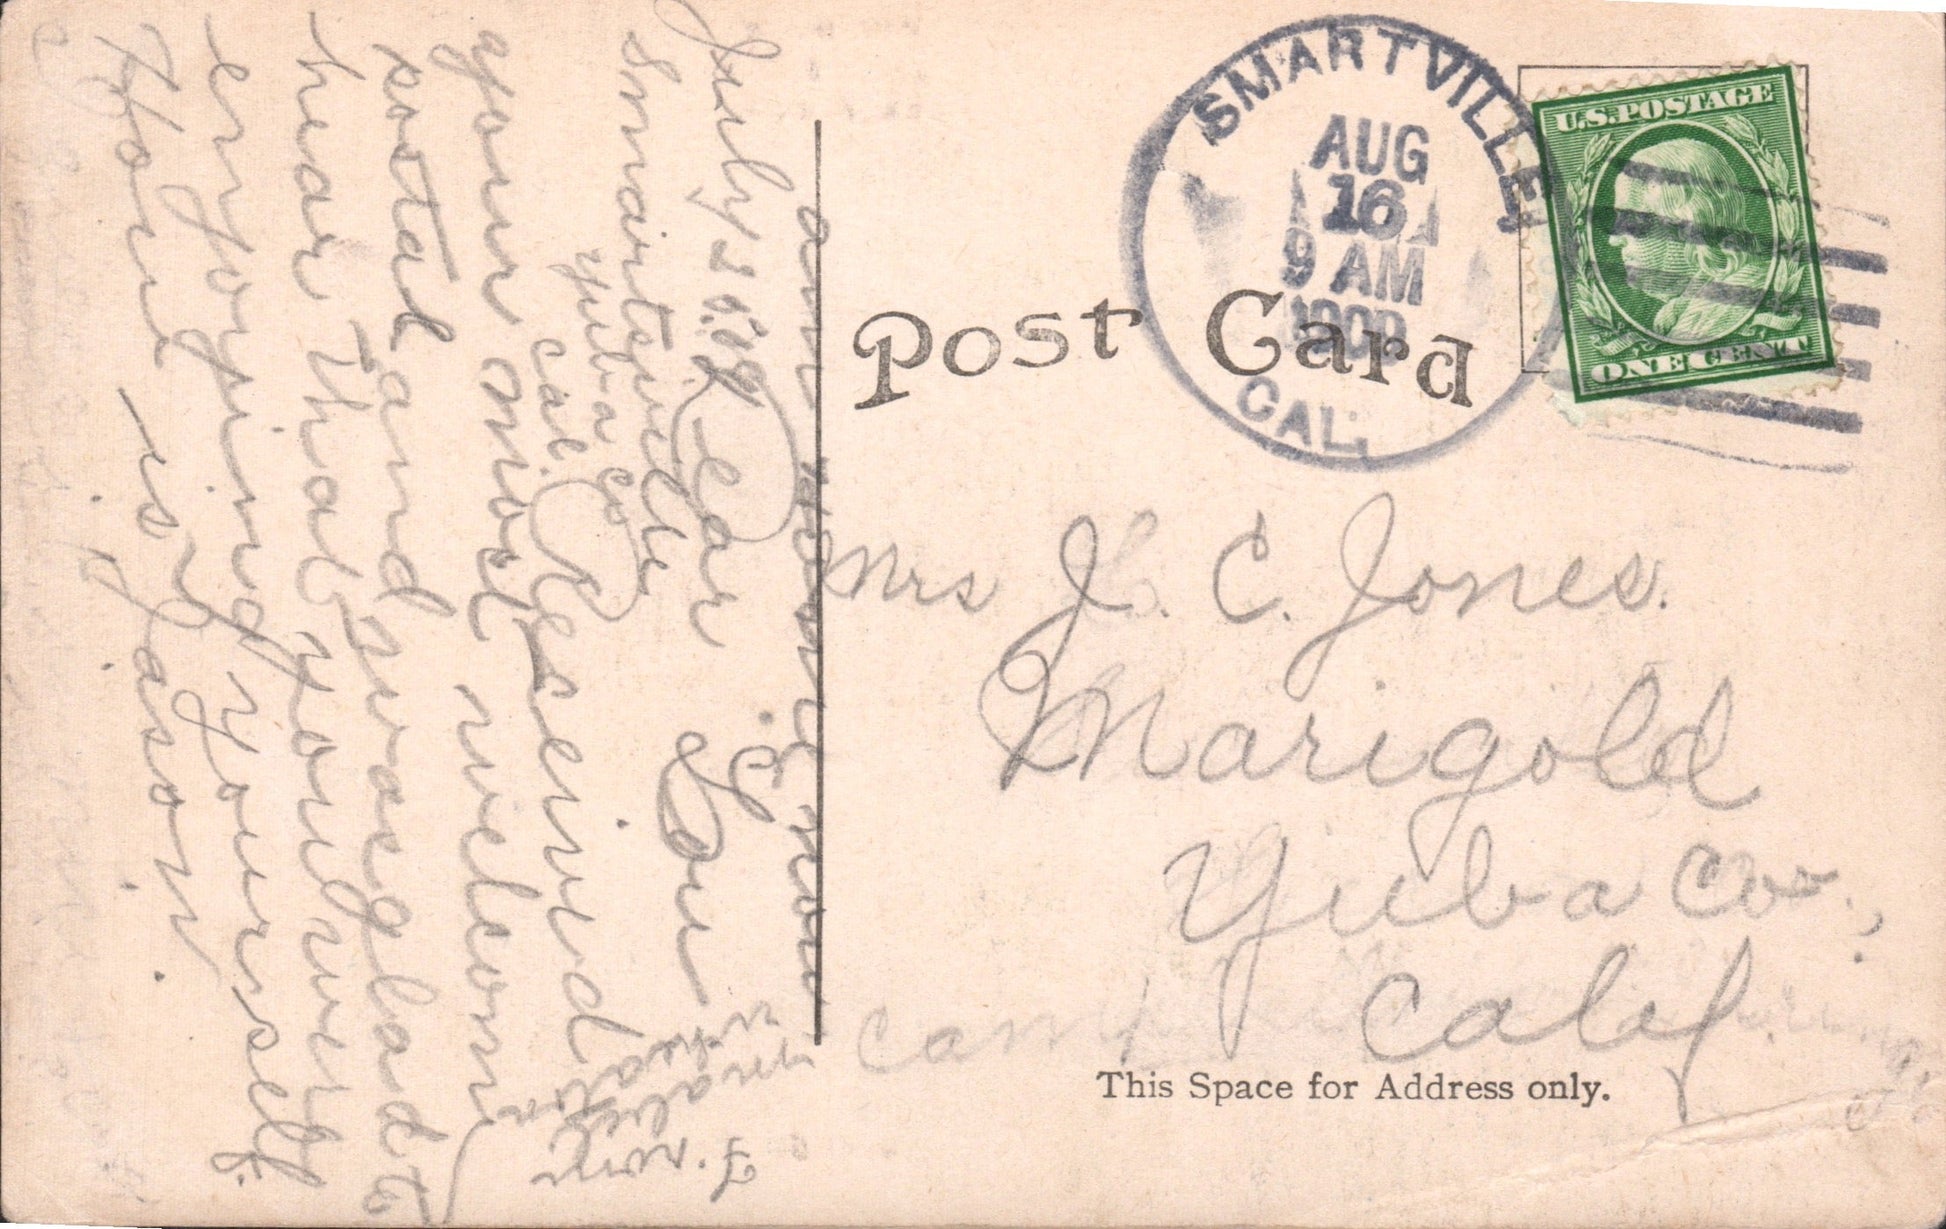 SMARTVILLE,
AUG
16
9 AM
1909
CAL.
U.S. POSTAGE
ONE CENT
Post Card
Mrs J. C. Jones.
Marigold
Yuba Co.,
Calif
This Space for Address only.
Smartsville
Yuba Co
Cal.
Dear Lou
Reseived
your most welcome
postal and was glad to
hear that you were
enyoying yourself.
How is Jason.
am
From